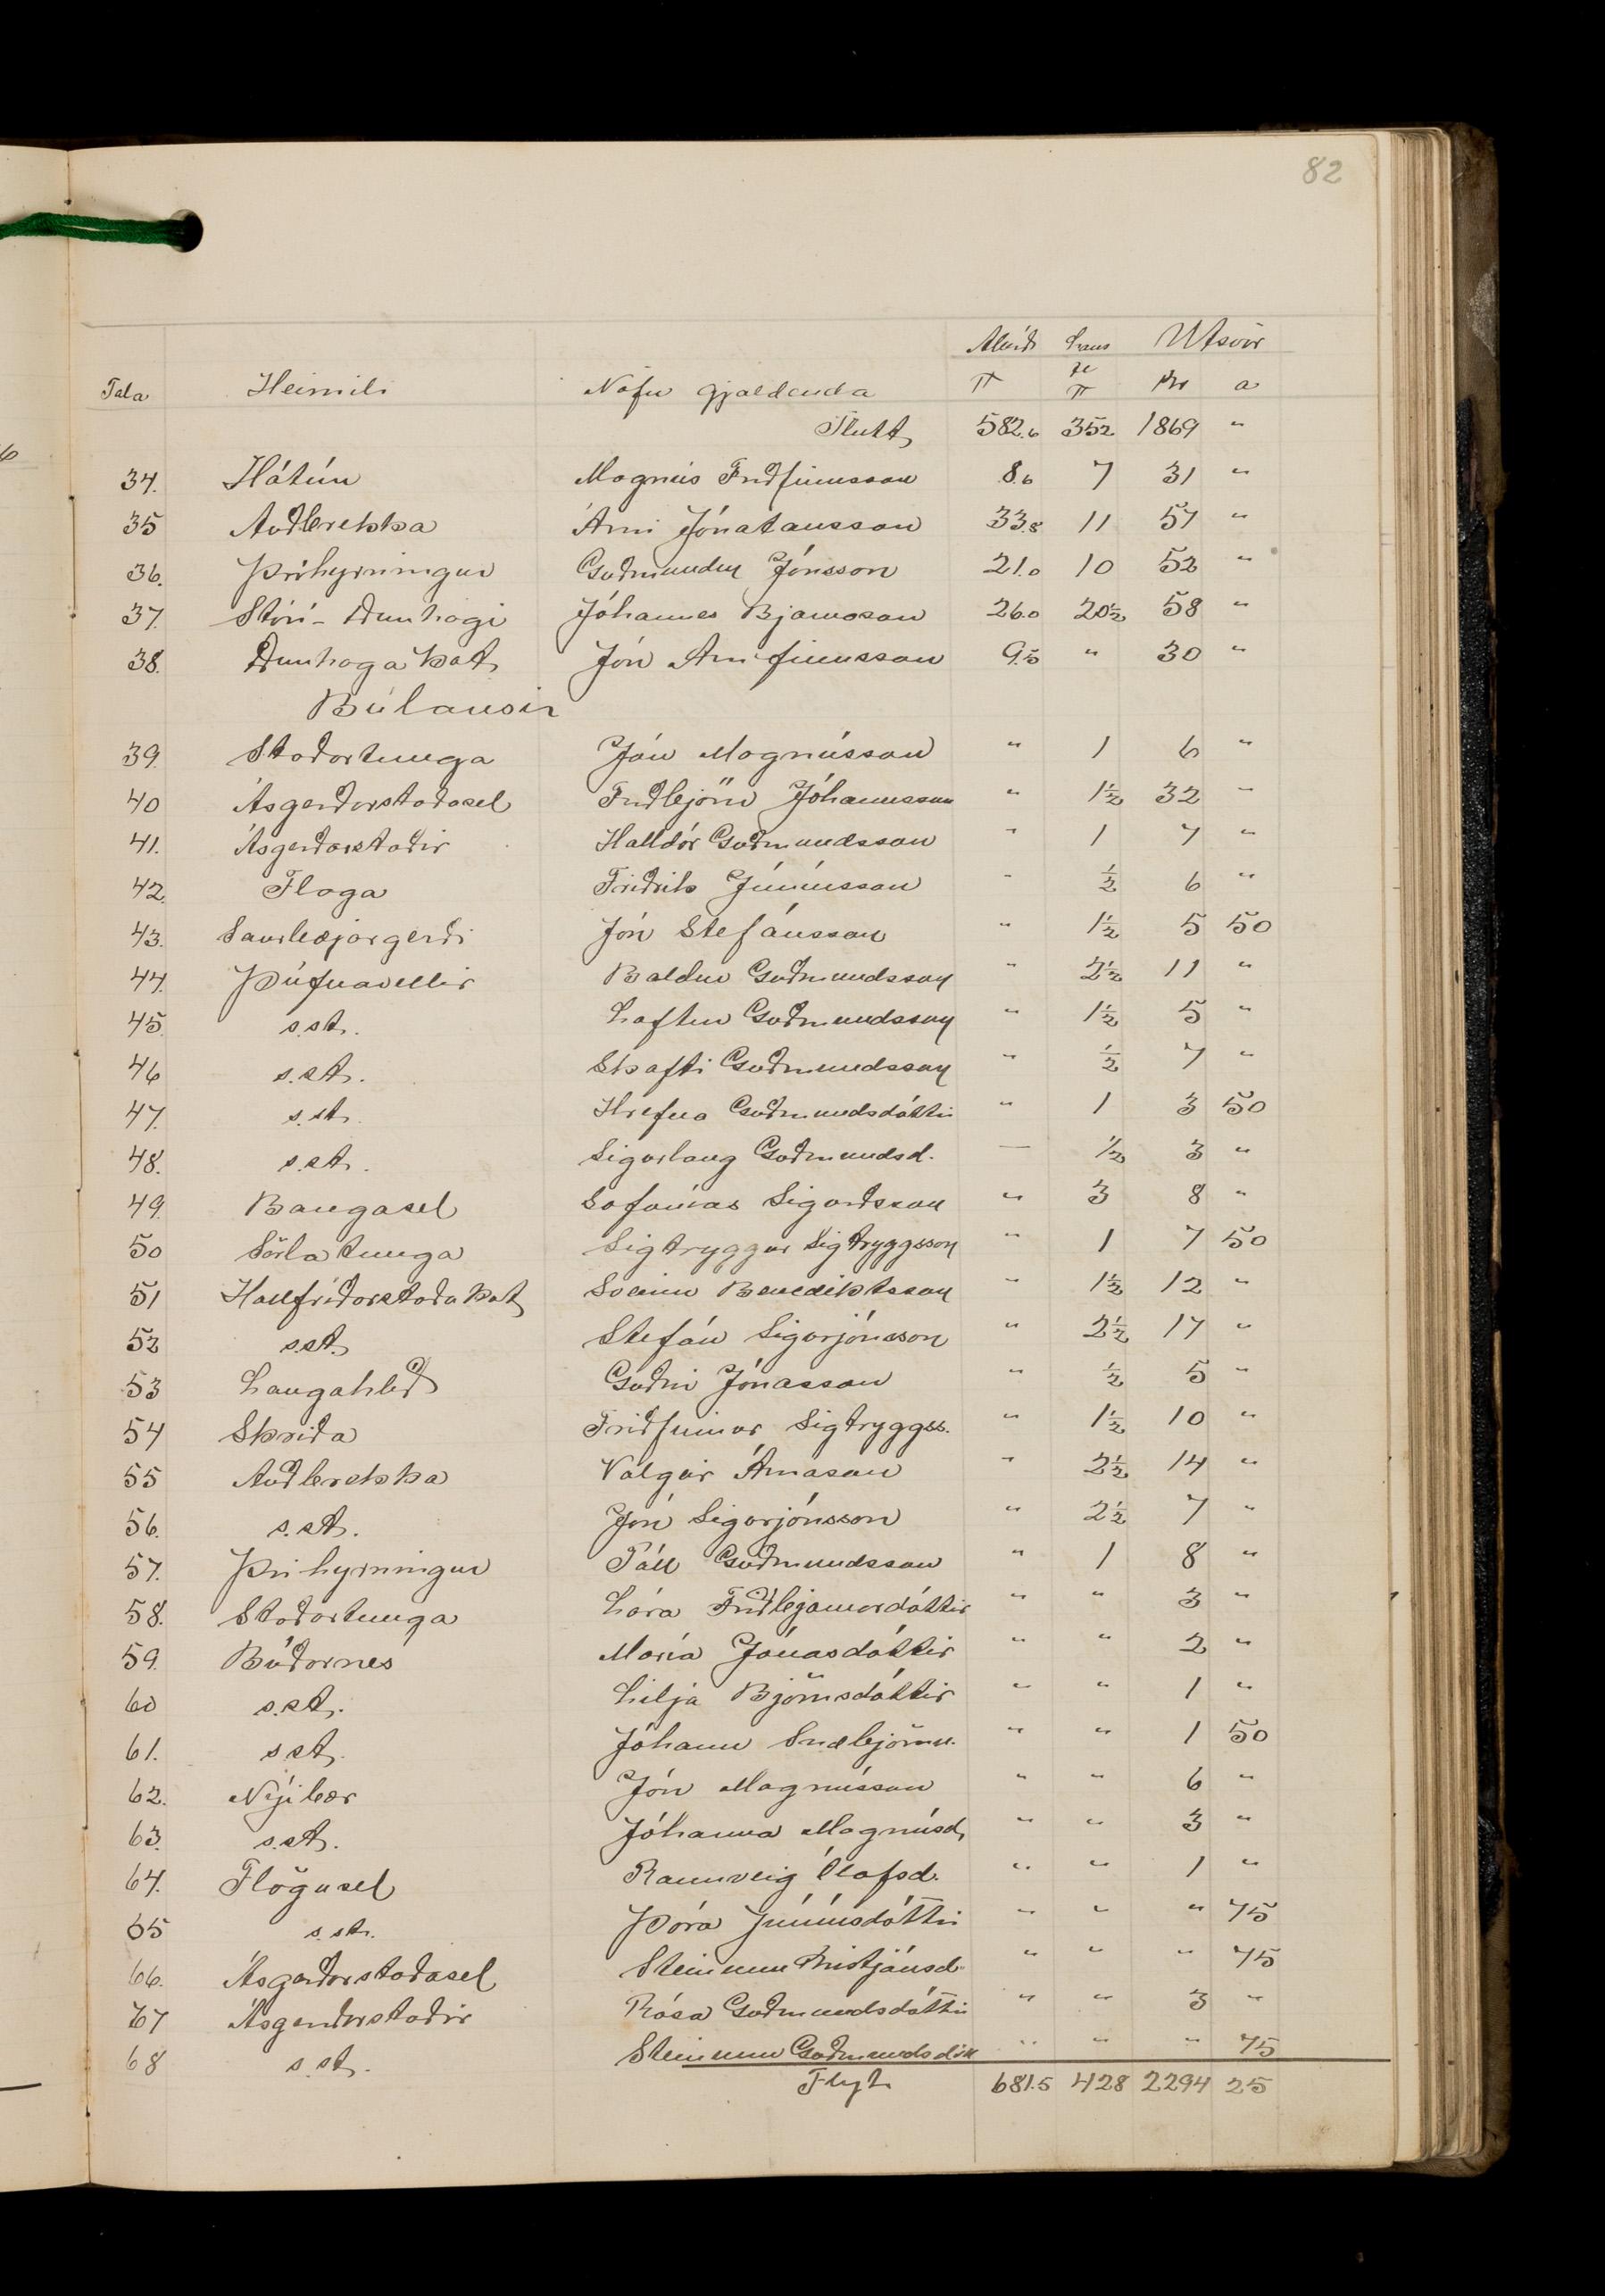 82
Ábúð Laus Útsvör
Tala Heimili Nöfn gjaldenda π fé π Kr a
Flutt 582.6 352 1869 "
34. Hátún Magnús Friðfinnsson 8.6 7 31 "
35 Auðbrekka Árni Jónatansson 33.8 11 57 "
36. Þríhyrningur Guðmundur Jónsson 21.0 10 52 "
37. Stóri-Dunhagi Jóhannes Bjarnason 26.0 20½ 58 "
38. Dunhagakot Jón Arnfinnsson 9.5 " 30 "
Búlausir
39. Staðartunga Jón Magnússon " 1 6 "
40 Ásgerðarstaðasel Friðbjörn Jóhannsson " 1½ 32 "
41. Ásgerðarstaðir Halldór Guðmundsson " 1 7 "
42. Flaga Friðrik Júníusson " ½ 6 "
43. Saurbæjargerði Jón Stefánsson " 1½ 5 50
44. Þúfnavellir Baldur Guðmundsson " 2½ 11 "
45. s.st. Loftur Guðmundsson " 1½ 5 "
46 s.st. Skafti Guðmundsson " ½ 7 "
47. s.st. Hrefna Guðmundsdóttir " 1 3 50
48. s.st. Sigurlaug Guðmundsd. — ½ 3 "
49. Baugasel Sofonías Sigurðsson " 3 8 "
50 Sörlatunga Sigtryggur Sigtryggsson " 1 7 50
51 Hallfríðarstaðakot Sveinn Benediktsson " 1½ 12 "
52 s.st. Stefán Sigurjónsson " 2½ 17 "
53 Laugahlíð Guðni Jónasson " ½ 5 "
54 Skriða Friðfinnur Sigtryggss. " 1½ 10 "
55 Auðbrekka Valgeir Árnason " 2½ 14 "
56. s.st. Jón Sigurjónsson " 2½ 7 "
57. Þríhyrningur Páll Guðmundsson " 1 8 "
58. Staðartunga Lára Friðbjarnardóttir " " 3 "
59. Búðarnes María Jónasdóttir " " 2 "
60 s.st. Lilja Björnsdóttir " " 1 "
61. s.st. Jóhann Snæbjörnss. " " 1 50
62. Nýibær Jón Magnússon " " 6 "
63. s.st. Jóhanna Magnúsd. " " 3 "
64. Flögusel Rannveig Ólafsd. " " 1 "
65 s.st. Þóra Júníusdóttir " " " 75
66. Ásgerðarstaðasel Steinunn Kristjánsd. " " " 75
67 Ásgerðarstaðir Rósa Guðmundsdóttir " " 3 "
68 s.st. Steinunn Guðmundsdótt " " " 75
Flyt 681.5 428 2294 25